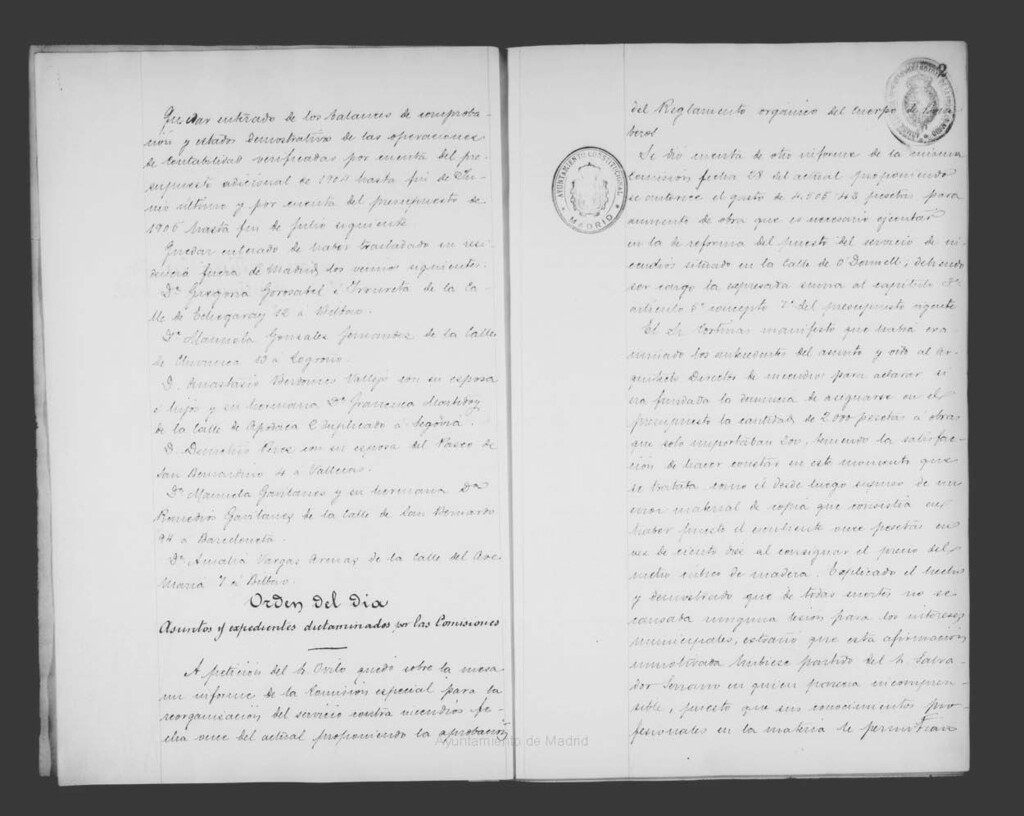 Quedar enterado de los balances de comproba-
ción y estados demostrativos de las operaciones
de contabilidad verificadas por cuenta del pre-
supuesto adicional de 1904 hasta fin de Ju-
nio último y por cuenta del presupuesto de
1905 hasta fin de Julio siguiente.
Quedar enterado de haber trasladado su resi-
dencia fuera de Madrid los vecinos siguientes.
Dª Gregoria Gorosabel é Irrureta de la Ca-
lle de Echegaray 12 a Bilbao.
Dª Manuela Gonzalez Fernandez de la Calle
de 13 a Logroño.
D. Anastasio Vallejo con su esposa
é hijo y su hermana Dª Francisca
de la Calle de Apodaca 2 duplicado a Segovia.
D. Demetrio Perez con su esposa del Paseo de
San Bernardino 4 a Vallecas.
Dª Manuela Gavilanes y su hermana Dª
Remedios Gavilanes de la Calle de San Bernardo
94 a Barcelona.
Dª Amalia Vargas Arenas de la Calle del Ave
Maria 7 a Bilbao.
Orden del Dia
Asuntos y expedientes dictaminados por las Comisiones
A petición del Sr Ovilo quedó sobre la mesa
un informe de la Comisión especial para la
reorganisación del servicio contra incendios fe-
cha once del actual proponiendo la aprobación
del Reglamento orgánico del Cuerpo de bom-
beros.
Se dió cuenta de otro informe de la misma
Comisión fecha 28 del actual proponiendo
se autorice el gasto de 4.505'43 pesetas para
aumento de obra que es necesario ejecutar
en la de reforma del puesto del servicio de in-
cendios situado en la Calle de O'Donnell, debiendo
ser cargo la expresada suma al capítulo 3º
artículo 5º concepto 7º del presupuesto vigente
El Sr Cortinas manifestó que habia exa-
minado los antecedentes del asunto y oido al ar-
quitecto Director de incendios para aclarar si
era fundada la denuncia de asignarse en el
presupuesto la cantidad de 2.000 pesetas á obras
que solo importaban 200, teniendo la satisfac-
ción de hacer constar en este momento que
se trataba como él desde luego supuso de un
error material de copia que consistia en
haber puesto el escribiente once pesetas en
vez de ciento diez al consignar el precio del
metro cúbico de madera. Explicado el hecho
y demostrando que de todas suertes no se
causaba ninguna lesión para los intereses
municipales, extrañó que esta afirmación
inmotivada hubiese partido del Sr Salva-
dor Serrano en quien parecia incompren-
sible, puesto que sus conocimientos pro-
fesionales en la materia le permitian
AYUNTAMIENTO CONSTITUCIONAL
MADRID
Ayuntamiento de Madrid